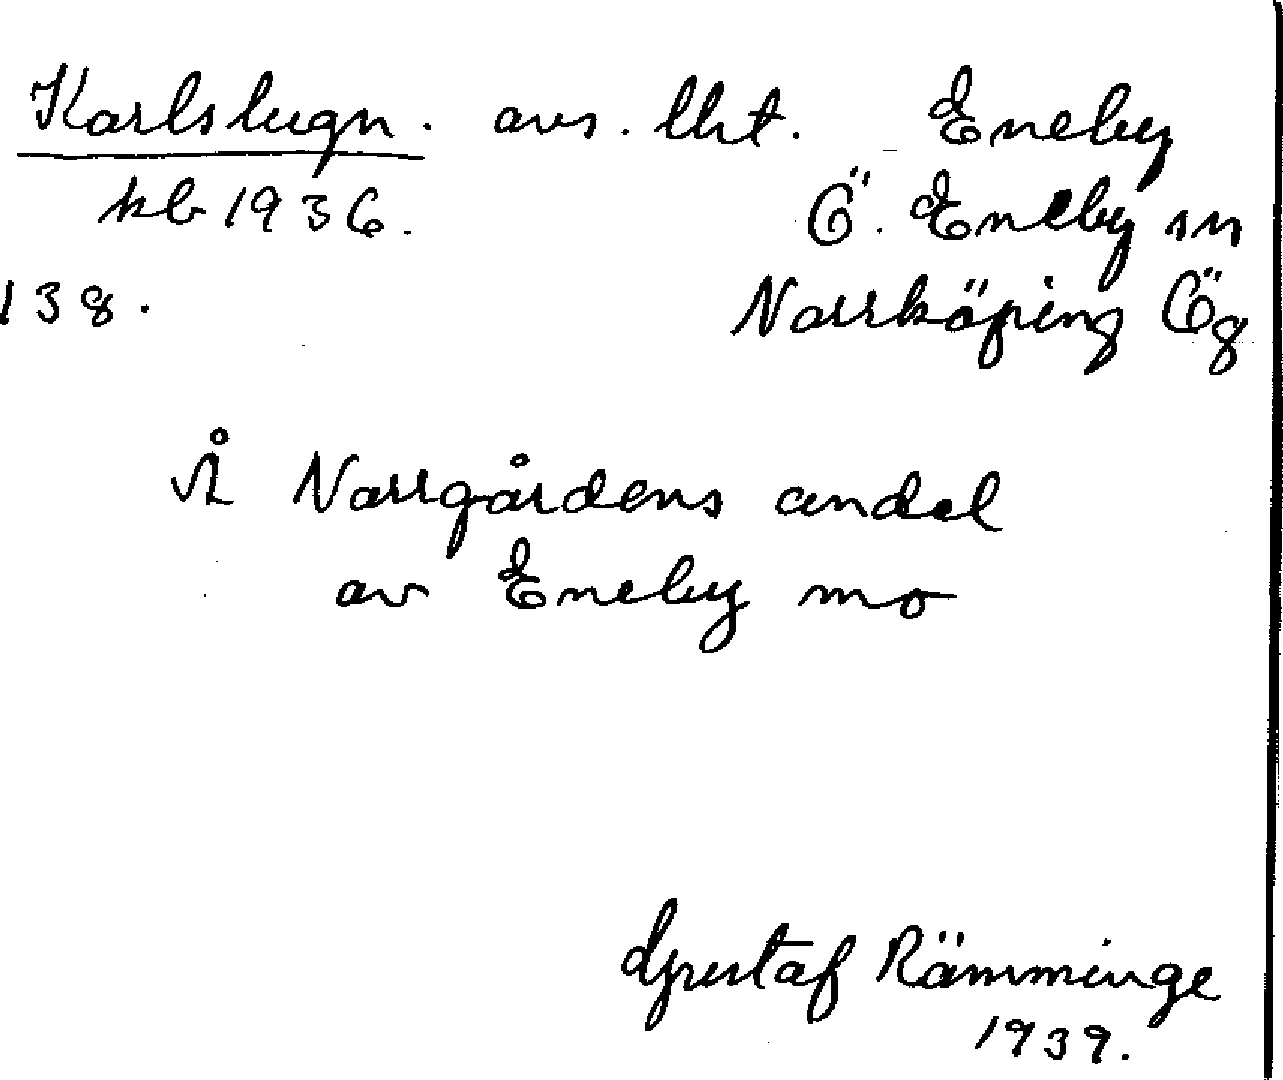 Karlslugn. avs. lht. Eneby
kb 1936. Ö. Eneby sn
138. Norrköping Ög
Å Norrgårdens andel
av Eneby mo
Gustaf Rämminge
1939.